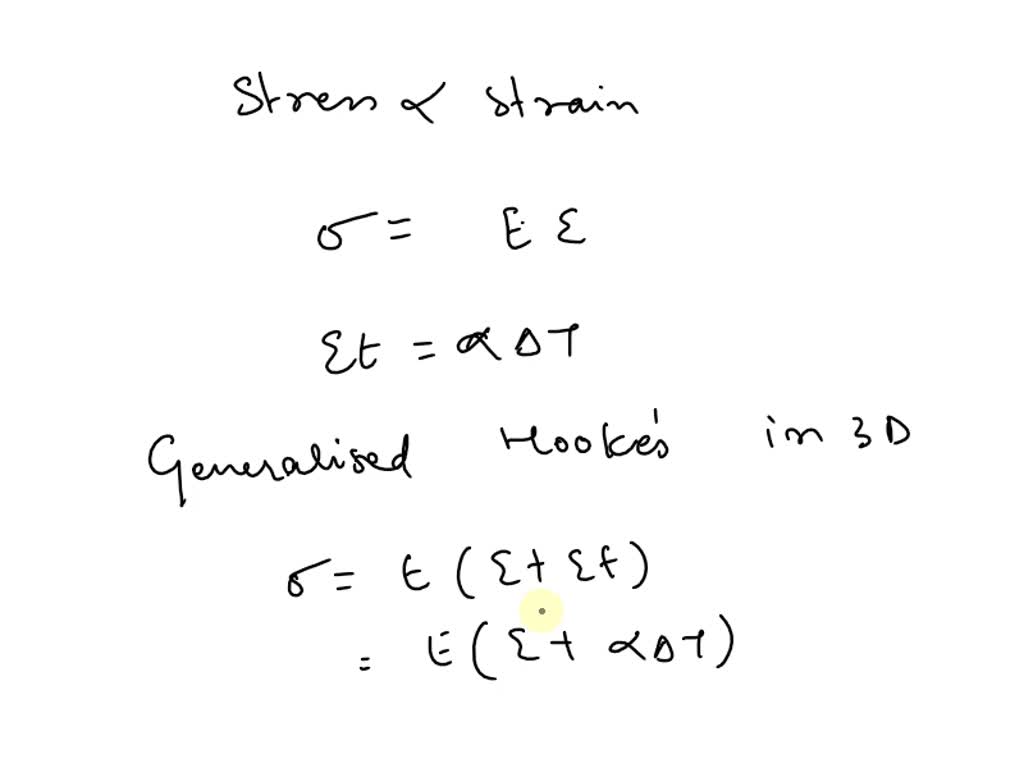 Stress ∝ strain
σ = E ε
εt = α ΔT
Generalised Hooke's in 3D
σ = E (ε + εt)
= E (ε + α ΔT)